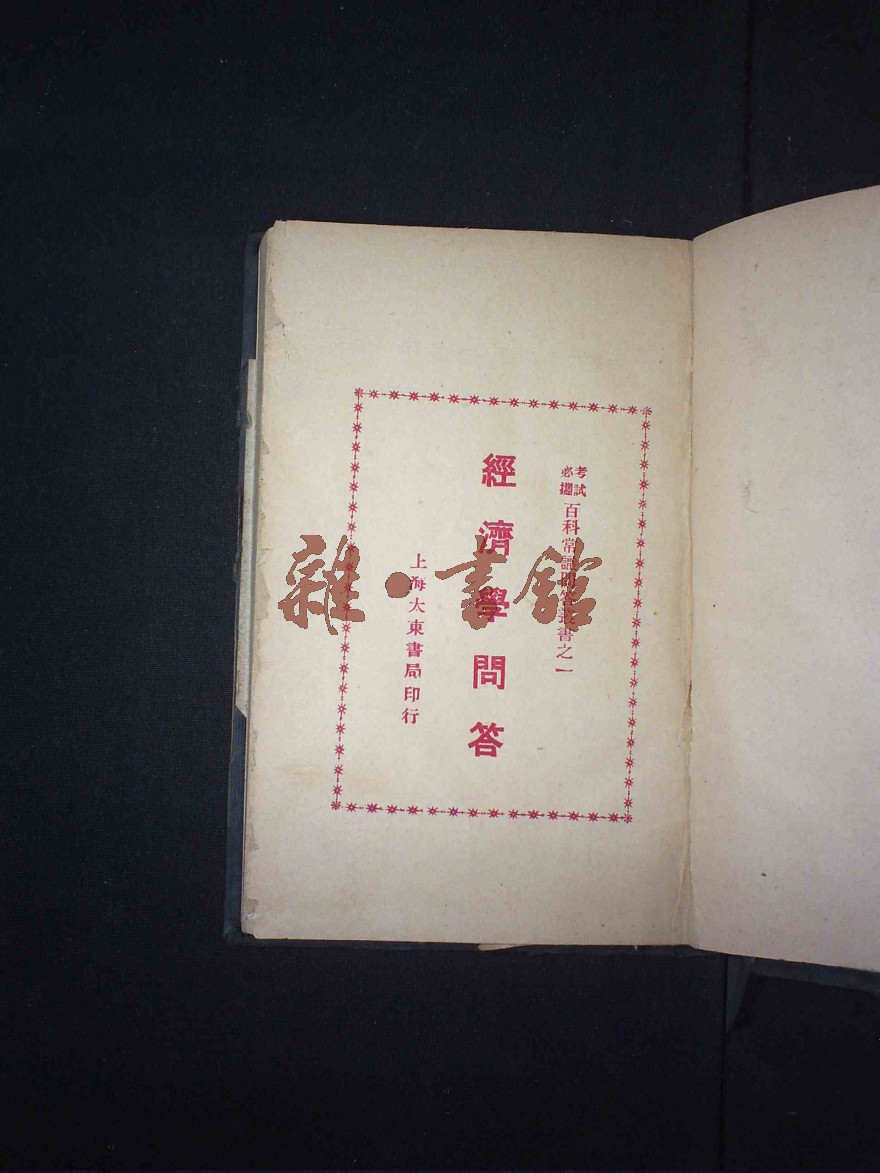 考試必攜 百科常識問答叢書之一
經濟學問答
上海大東書局印行
雜·書館